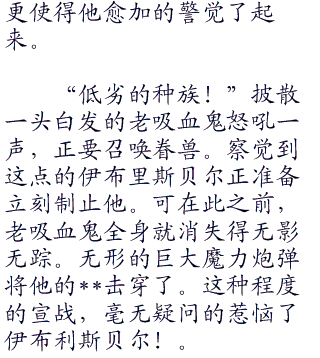 更使得他愈加的警觉了起
来。
“低劣的种族！”披散
一头白发的老吸血鬼怒吼一
声，正要召唤眷兽。察觉到
这点的伊布里斯贝尔正准备
立刻制止他。可在此之前，
老吸血鬼全身就消失得无影
无踪。无形的巨大魔力炮弹
将他的**击穿了。这种程度
的宣战，毫无疑问的惹恼了
伊布利斯贝尔！。